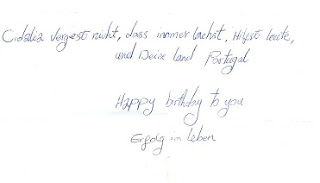 Cidalia vergest nicht, dass immer lachst, Hilfst leute,
und Deine land Portugal
Happy birthday to you
Erfolg im leben